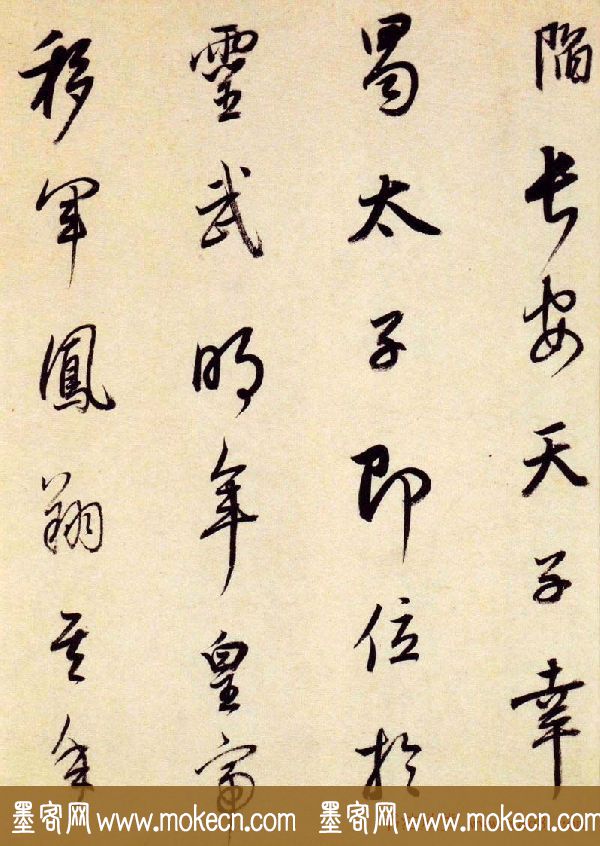 陷長安天子幸
蜀太子即位於
靈武明年皇帝
移軍鳳翔其年
墨客网 www.mokecn.com 墨客网 www.mokecn.com